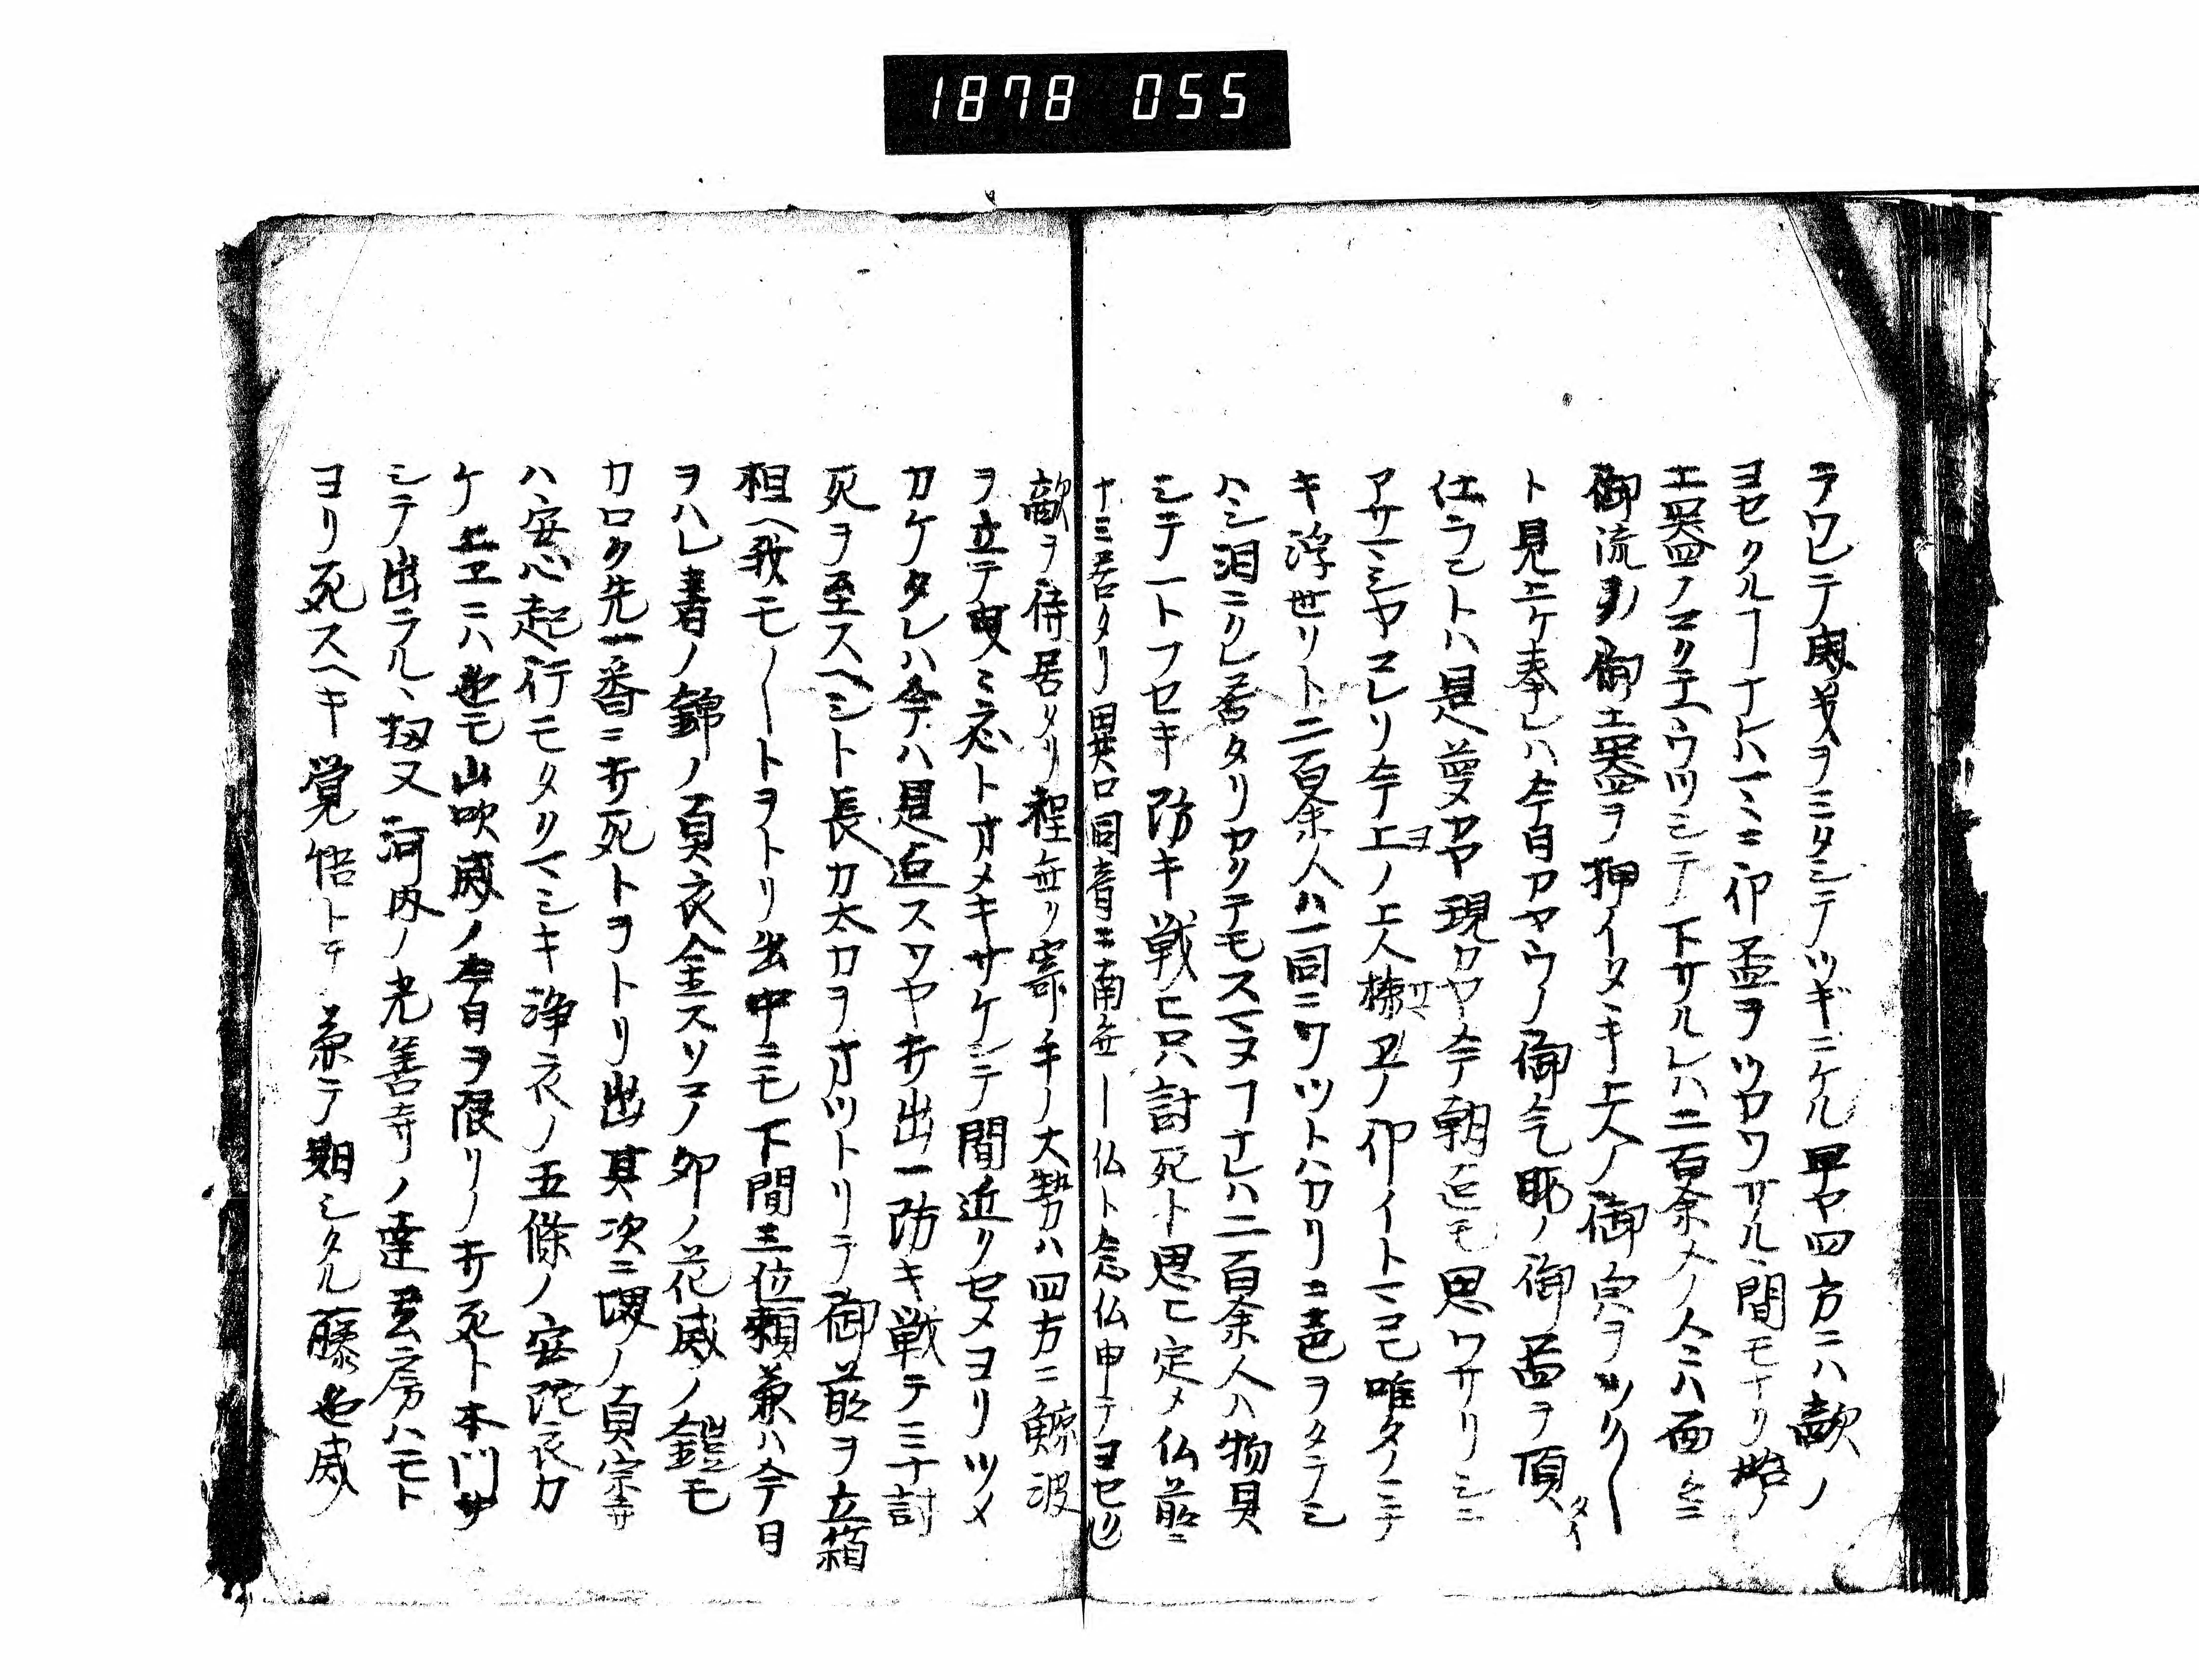 1878 055
ラワレテ奥義ヲミタシテツギニケル早ヤ四方ニハ敵ノ
ヨセクルヿナレハ一ミニ卯盃ヲツカワサル間モナリ
土器ノマクチウツシテ下サルレハ二百余人ノ人ミハ面々ニ
御流 御土器ヲ押イタヽキ上人ノ御
ト見上ケ奉レハ今日アヤウノ御气 ノ御盃ヲ頂
仕ラントハ是夢カヤ現カヤ今朝迄モ思ワサリシニ
アサマシヤマレリ今上ノ上人様ヱノ卯イトマコモ唯タノミテ
キ浮世リト二百余人ハ一同ニワツトハカリニ声ヲタテシ
ハシ泪ニクレ居タリカクテモスマヌヿナレハ二百余人ハ物具
シテ一トフセキ防キ戦ヒ只討死ト思ヒ定メ仏前ニ
十ミ居タリ異口同音ニ南無ー仏ト念仏申テヨセ
敵ヲ待居タリ程無ク寄手ノ大勢ハ四方ニ鯨波
ヲ立テ ミ忍トオメキサケンテ間近クセメヨリツメ
カケタレハ今ハ是迄スワヤ打出一防キ戦テミナ討
死ヲ至スヘシト長刀太刀ヲオツトリテ御前ヲ立箱
相ヘ我モ〳〵トヲトリ出中ニモ下間三位頼兼ハ今日
ヲハレ着ノ錦ノ直衣金スリコノ卯ノ花威ノ鎧モ
カロク先一番ニ打死トヲトリ出其次ニ堺ノ真宗寺
ハ安心起行モタクマシキ浄衣ノ五條ノ安陀衣カ
ケ上ヱニハ也モ山吹威ノ今日ヲ限リノ打死ト本門サ
シテ出ラル、扨又河内ノ光善寺ノ達玄房ハモト
ヨリ死スヘキ覚悟トテ兼テ期シタル藤色威ノ